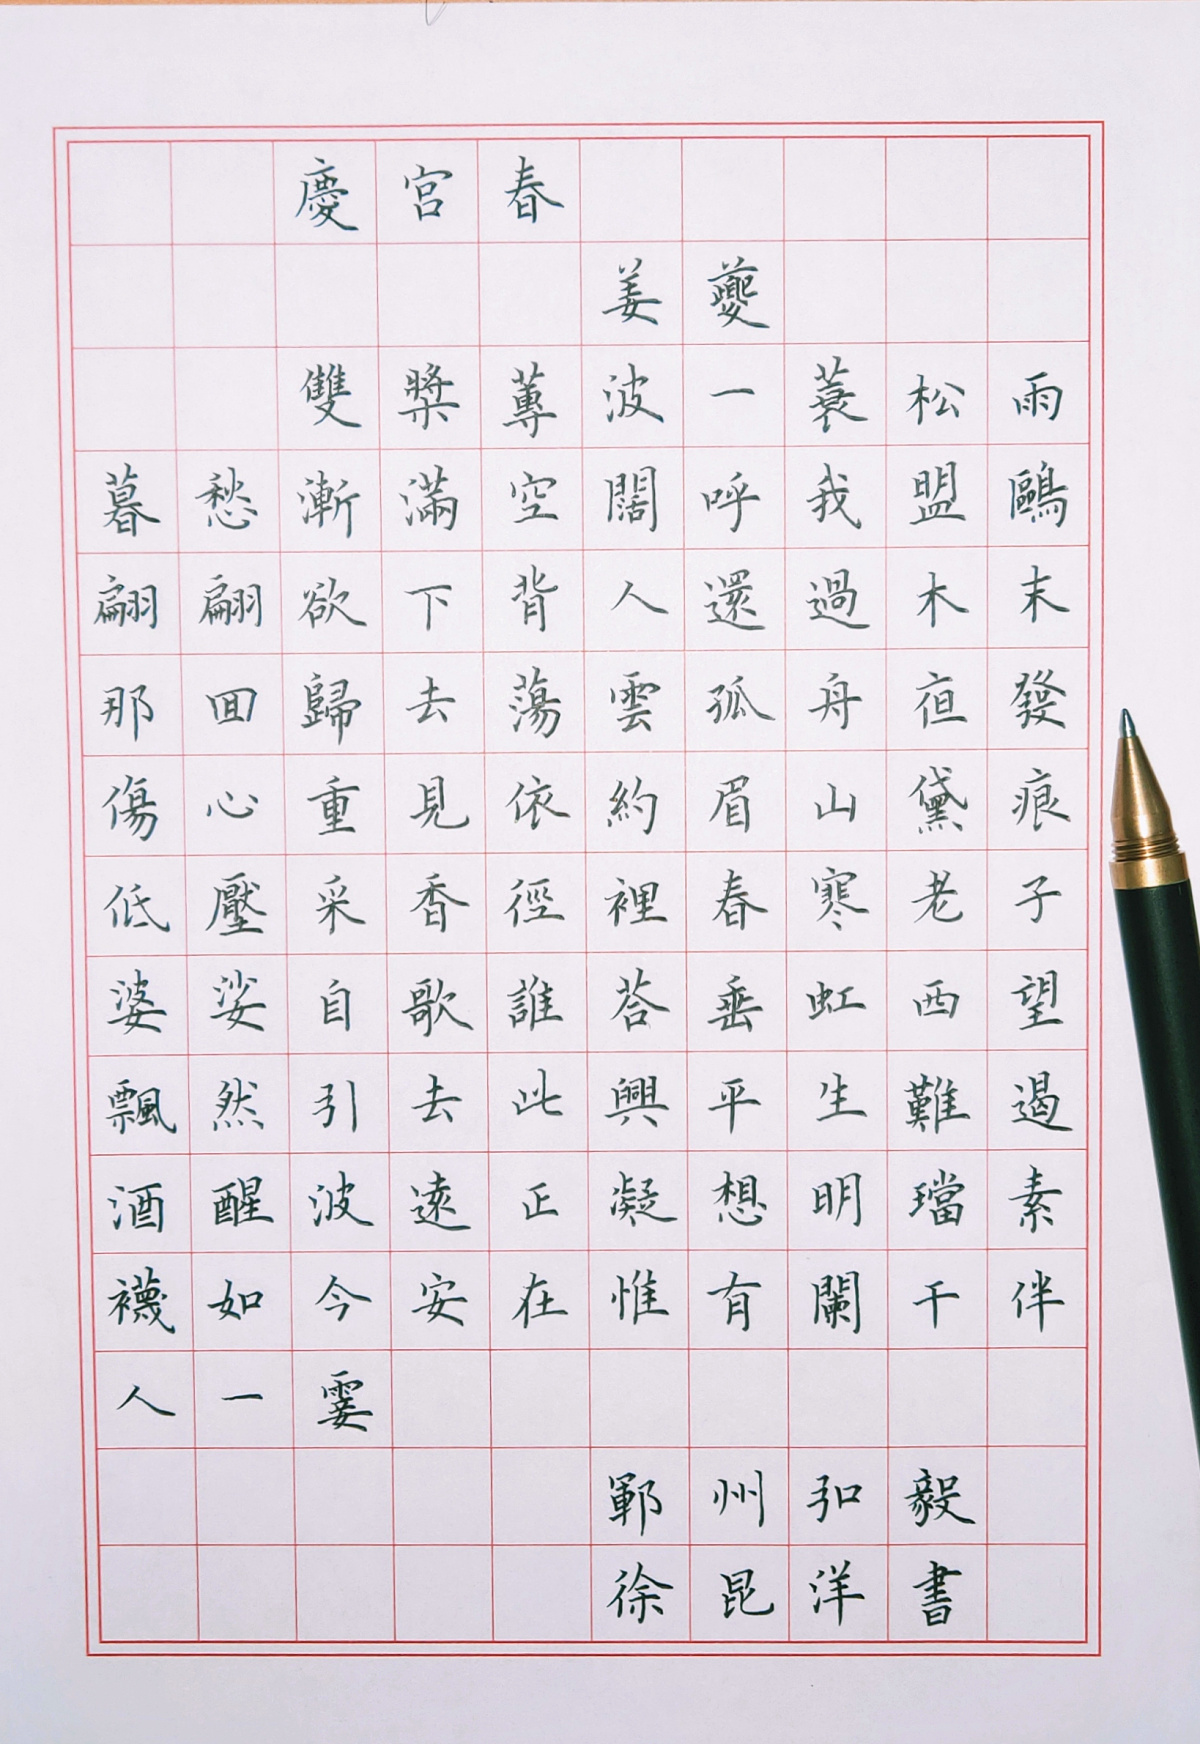 慶宮春
姜夔
雙槳蓴波一蓑松雨
暮愁漸滿空闊呼我盟鷗
翩翩欲下背人還過木末
那回歸去蕩雲孤舟夜發
傷心重見依約眉山黛痕
低壓采香徑裡春寒老子
婆娑自歌誰荅垂虹西望
飄然引去此興平生難遏
酒醒波遠正凝想明璫素
襪如今安在惟有闌干伴
人一霎
鄆州弘毅
徐昆洋書